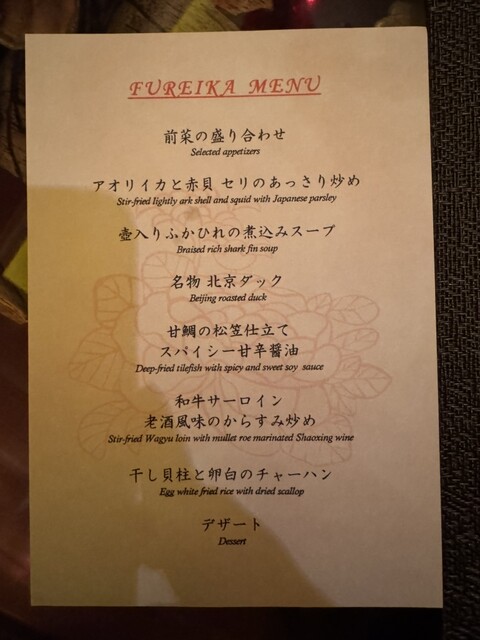 FUREIKA MENU
前菜の盛り合わせ
Selected appetizers
アオリイカと赤貝 セリのあっさり炒め
Stir-fried lightly ark shell and squid with Japanese parsley
壺入りふかひれの煮込みスープ
Braised rich shark fin soup
名物 北京ダック
Beijing roasted duck
甘鯛の松笠仕立て
スパイシー甘辛醤油
Deep-fried tilefish with spicy and sweet soy sauce
和牛サーロイン
老酒風味のからすみ炒め
Stir-fried Wagyu loin with mullet roe marinated Shaoxing wine
干し貝柱と卵白のチャーハン
Egg white fried rice with dried scallop
デザート
Dessert